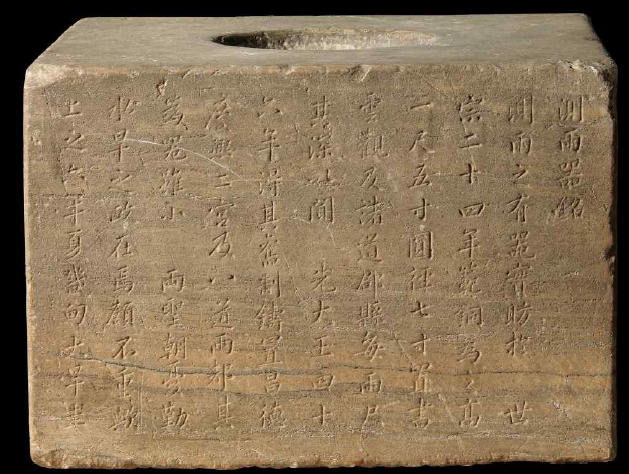 測雨器銘
測雨之有器實昉於 世
宗二十四年範銅爲之高
一尺五寸圓徑七寸置書
雲觀及諸道郡縣每雨尺
其深以聞 先大王四十
六年得其舊制鑄置昌德
慶熙二宮及八道兩都其
爲器雖小 兩聖朝憂勤
旱之政在焉顧不重歟
上之六年夏畿甸大旱